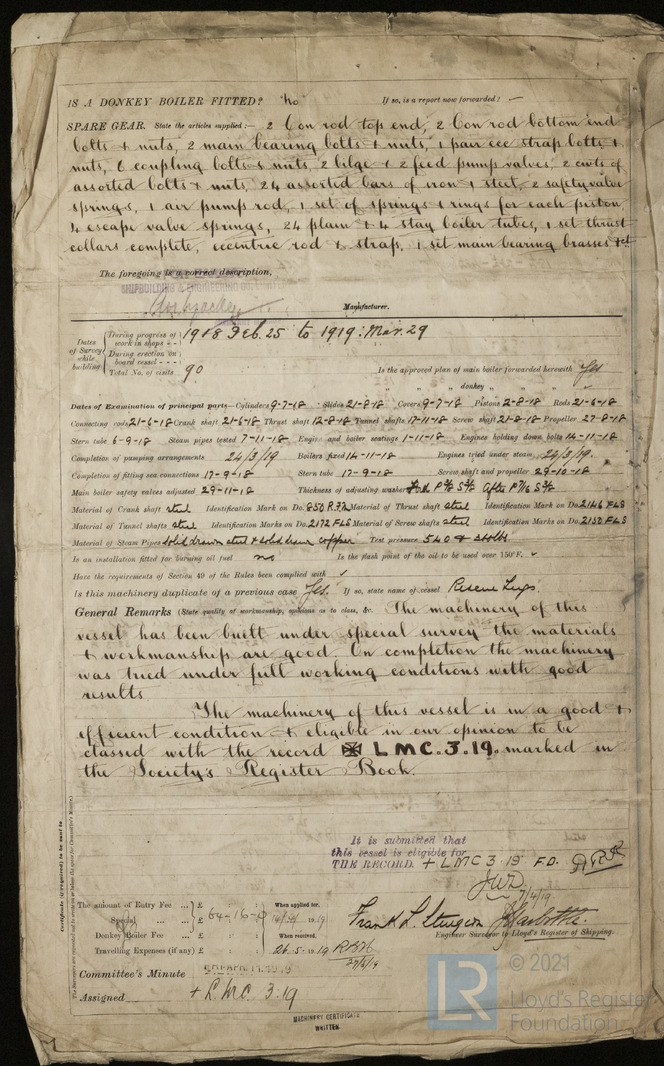 IS A DONKEY BOILER FITTED? "no" If so, is a report now forwarded? —
SPARE GEAR. State the articles supplied:— 2 Con rod top end, 2 Con rod bottom end
bolts & nuts, 2 main bearing bolts & nuts, 1 pair ecc strap bolts &
nuts, 6 coupling bolts & nuts, 2 bilge & 2 feed pump valves, 2 cwts of
assorted bolts & nuts, 24 assorted bars of iron & steel, 2 safety valve
springs, 1 air pump rod, 1 set of springs & rings for each piston
4 escape valve springs, 24 plain & 4 stay boiler tubes, 1 set thrust
collars complete, eccentric rod & strap, 1 set main bearing brasses &ct
The foregoing is a correct description,
SHIPBUILDING & ENGINEERING
Manufacturer.
Dates of Survey while building
During progress of work in shops - - 1918 Feb. 25 to 1919: Mar. 29
During erection on board vessel - - -
Total No. of visits 90
Is the approved plan of main boiler forwarded herewith Yes
" " " donkey " " "
Dates of Examination of principal parts—Cylinders 9-7-18 Slides 21-8-18 Covers 9-7-18 Pistons 2-8-18 Rods 21-6-18
Connecting rods 21-6-18 Crank shaft 21-6-18 Thrust shaft 12-8-18 Tunnel shafts 17-11-18 Screw shaft 21-8-18 Propeller 27-8-18
Stern tube 6-9-18 Steam pipes tested 7-11-18 Engine and boiler seatings 1-11-18 Engines holding down bolts 14-11-18
Completion of pumping arrangements 24/3/19 Boilers fixed 14-11-18 Engines tried under steam 24/3/19.
Completion of fitting sea connections 17-9-18 Stern tube 17-9-18 Screw shaft and propeller 29-10-18
Main boiler safety valves adjusted 29-11-18 Thickness of adjusting washers
Material of Crank shaft steel Identification Mark on Do. 850 Material of Thrust shaft steel Identification Mark on Do. 2146 FLS
Material of Tunnel shafts steel Identification Marks on Do. 2172 FLS Material of Screw shafts steel Identification Marks on Do. 2150 FLS
Material of Steam Pipes solid drawn steel & solid drawn copper Test pressure 540 &
Is an installation fitted for burning oil fuel no Is the flash point of the oil to be used over 150°F. ✓
Have the requirements of Section 49 of the Rules been complied with ✓
Is this machinery duplicate of a previous case Yes. If so, state name of vessel Rescue Tugs
General Remarks (State quality of workmanship, opinions as to class, &c. The machinery of this
vessel has been built under special survey the materials
& workmanship are good. On completion the machinery
was tried under full working conditions with good
results
The machinery of this vessel is in a good &
efficient condition & eligible in our opinion to be
classed with the record ✠ LMC. 3.19. marked in
the Society's Register Book.
It is submitted that
this vessel is eligible for
THE RECORD. + LMC 3.19 F.D.
JWD
7/4/19
Certificate (if required) to be sent to
The amount of Entry Fee ... £ : :
Special ... ... £ 64-16-0
Donkey Boiler Fee ... £ : :
Travelling Expenses (if any) £ : :
When applied for,
When received,
26.5.1919
Frank L. Sturgeon
Engineer Surveyor to Lloyd's Register of Shipping.
Committee's Minute
Assigned + LMC 3.19
MACHINERY CERTIFICATE
WRITTEN
LR
© 2021
Lloyd's Register
Foundation